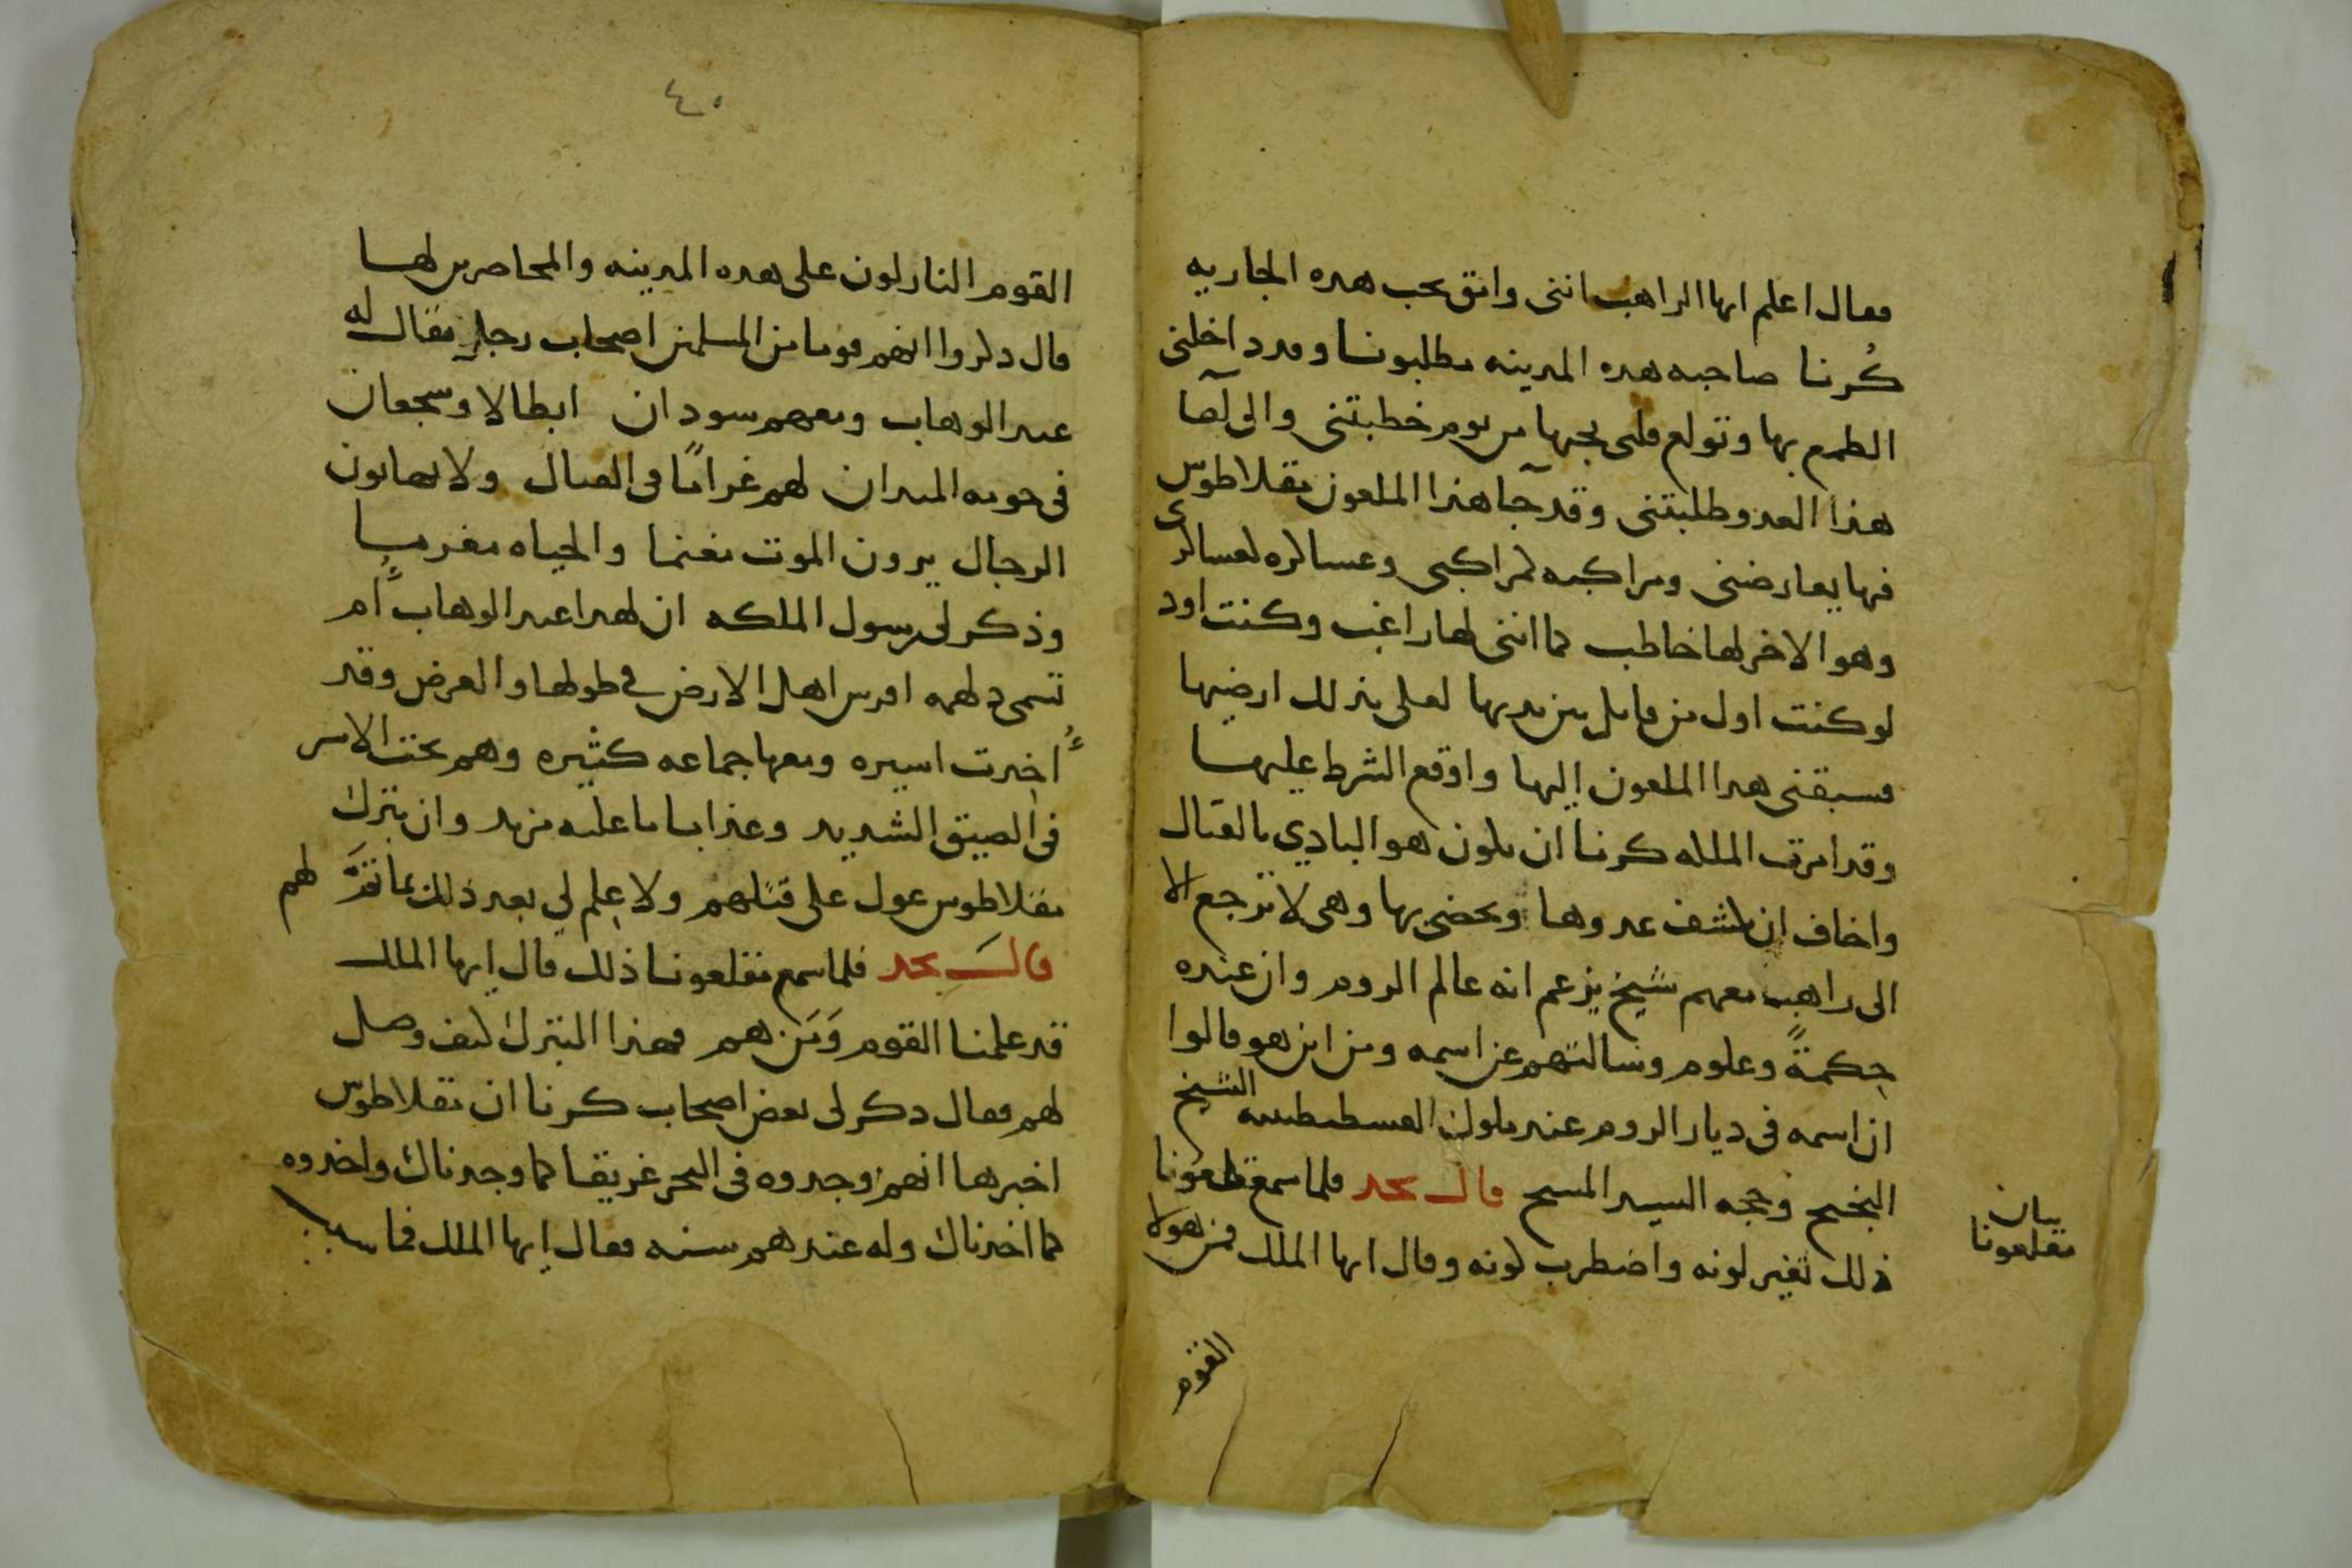 فقال اعلم ايها الراهب اننى واثق بحب هده الجاريه
كُرنا صاحبه هده المدينه مطلبونا وقد داخلنى
الطمع بها وتولع قلبى بحبها من يوم خطبتنى والى لقا
هذا العدو طلبتنى وقد جآ هذا الملعون بقلاطوس
فيها يعارضنى ومراكبه لمراكبى وعساكره لعساكرى
وهو الاخر لها خاطب كما اننى لها راغب وكنت اود
لو كنت اول من قاتل بين يديها لعلى بذلك ارضيها
فسبقنى هدا الملعون إليها واوقع الشرط عليها
وقد امرت الملكه كرنا ان يكون هو البادي بالقتال
واخاف ان يكشف عدوها ويحضى بها وهى لا ترجع الا
الى راهب معهم شيخ يزعم انه عالم الروم وان عنده
حِكمةً وعلوم وسالتهم عن اسمه ومن اين هو قالوا
ان اسمه فى ديار الروم عند ملوك القسطنطينيه الشيخ
النجيح وحجه السيد المسيح قال نجد فلما سمع قلعونا
ذلك تغير لونه واضطرب كونه وقال ايها الملك فمن هولا
بيان
مقلعونا
القوم
٤٠
القوم النازلون على هده المدينه والمحاصرين لها
قال دكروا انهم قوما من المسلمين اصحاب رجل يقال له
عبد الوهاب ومعهم سودان ابطالا وشجعان
فى حومه الميدان لهم غرامًا فى القتال ولا يهابون
الرجال يرون الموت مغنما والحياه مغرما
وذكر لى رسول الملكه ان لهدا عبد الوهاب اُم
تسمى دلهمه افرس اهل الارض في طولها والعرض وقد
اُخدت اسيره ومعها جماعه كثيره وهم تحت الاسر
فى الضيق الشديد وعذابا ما عليه مزيد وان بتزك
بقلاطوس عول على قتلهم ولا عِلم لي بعد ذلك بما تَمَّ لهم
قال نجد فلما سمع مقلعونا ذلك قال إيها الملك
قد علمنا القوم وَمَن هم فهذا البتزك كيف وصل
لهم فقال دكر لى بعض اصحاب كرنا ان بقلاطوس
اخبرها انهم وجدوه فى البحر غريقا كما وجدناك واخدوه
كما اخدناك وله عندهم سنه فقال إيها الملك فما